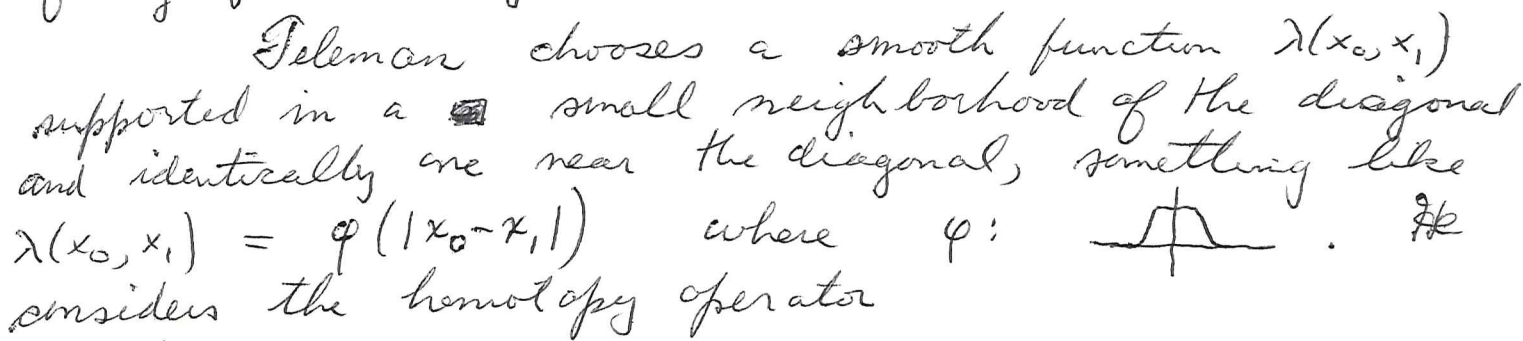 Teleman chooses a smooth function λ(x₀, x₁)
supported in a small neighborhood of the diagonal
and identically one near the diagonal, something like
λ(x₀, x₁) = φ(|x₀-x₁|) where φ: . He
considers the homotopy operator